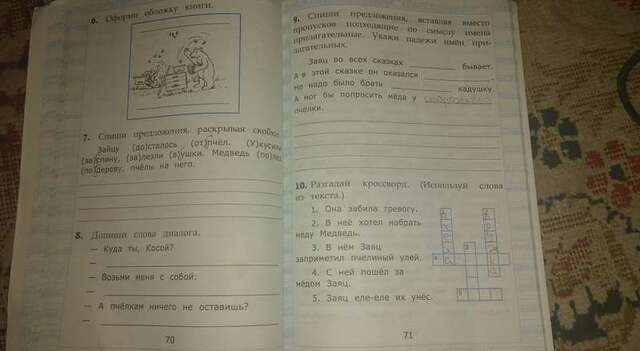 6. Оформи обложку книги.
7. Спиши предложения, раскрывая скобки.
Зайцу (до)сталось (от)пчёл. (У)кусили
(за)спину, (за)лезли (в)ушки. Медведь (по)лез
(по)дереву, пчёлы на него.
8. Допиши слова диалога.
— Куда ты, Косой?
—
— Возьми меня с собой.
—
— А пчёлкам ничего не оставишь?
—
70
9. Спиши предложения, вставляя вместо
пропусков подходящие по смыслу имена
прилагательные. Укажи падежи имён при-
лагательных.
Заяц во всех сказках бывает.
А в этой сказке он оказался
Не надо было брать кадушку.
А мог бы попросить мёда у
пчёлки.
10. Разгадай кроссворд. (Используй слова
из текста.)
1. Она забила тревогу.
2. В неё хотел набрать
мёду Медведь.
3. В нём Заяц
заприметил пчелиный улей.
4. С ней пошёл за
мёдом Заяц.
5. Заяц еле-еле их унёс.
71